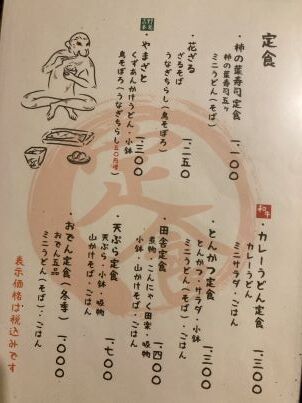 定食
・柿の葉寿司定食
柿の葉寿司五ヶ
ミニうどん(そば)
一、一〇〇
・花ざる
ざるそば
うなぎちらし(鳥そぼろ)
一、二五〇
・やまざと
くずあんかけうどん・小鉢
鳥そぼろ(うなぎちらし五〇円増)
一、三〇〇
和牛
・カレーうどん定食
カレーうどん
ミニサラダ・ごはん
一、三〇〇
・とんかつ定食
とんかつ・サラダ・小鉢
ミニうどん(そば)・ごはん
一、三〇〇
・田舎定食
煮物・こんにゃく田楽・吸物
小鉢・山かけそば・ごはん
一、四〇〇
・天ぷら定食
天ぷら・小鉢・吸物
山かけそば・ごはん
一、七〇〇
・おでん定食(冬季)
おでん五品
ミニうどん(そば)・ごはん
一、〇〇〇
表示価格は税込みです
定食